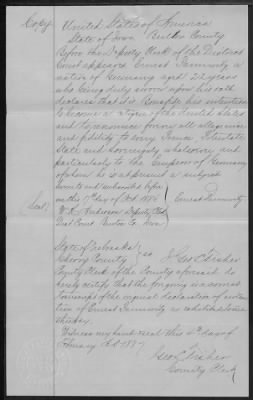 Copy
United States of America
State of Iowa Benton County
Before the Deputy Clerk of the District
Court appeared Ernest a
native of Germany aged 22 years
who being duly sworn upon his oath
declares that it is Bonafide his intention
to become a citizen of the United States
and to renounce forever all allegiance
and fidelity to every Prince Potentate
State and Sovereignty whatsoever and
particularly to the Emperor of Germany
of whom he is at present a subject
sworn to and subscribed before
me this day of Oct 188 Ernest
Seal W. R. Anderson Deputy Clerk
Dist Court Benton Co Iowa
State of Nebraska
Cherry County ss I Geo C Fisher
County Clerk of the County aforesaid do
hereby certify that the forgoing is a correct
transcript of the original declaration of inten
tion of Ernest as exhibited to me
Witness my hand & seal this day of
February A D 1887
Geo C Fisher
County Clerk